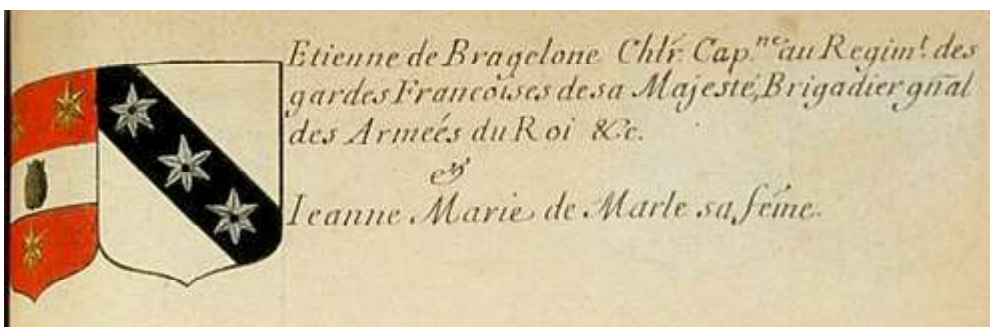 Etienne de Bragelone Chlr. Cap.ne au Regim.t des
gardes Francoises de sa Majesté, Brigadier gñal
des Armeés du Roi &c.
et
Ieanne Marie de Marle sa féme.